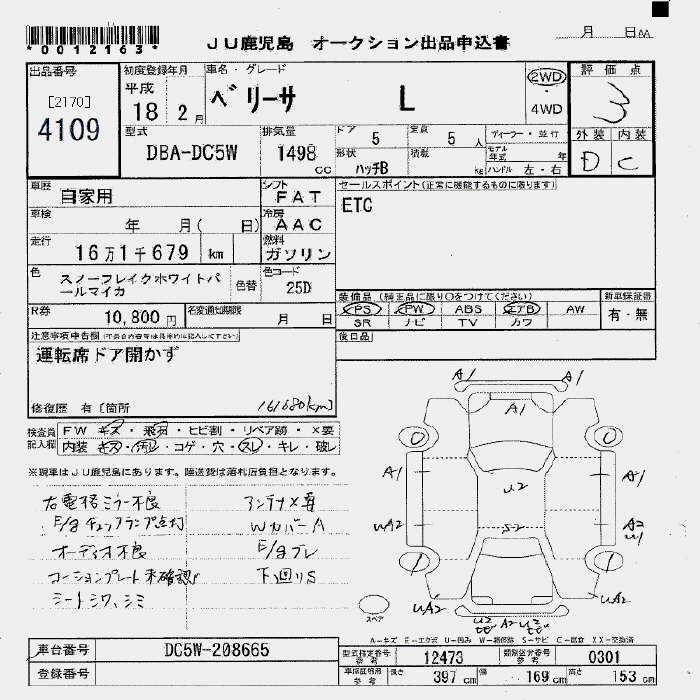 *0012163*
JU鹿児島 オークション出品申込書
月 日 AA
出品番号 [2170] 4109
初度登録年月 平成 18 2月
車名・グレード ベリーサ L
2WD・4WD
評価点 3
外装 D 内装 C
型式 DBA-DC5W
排気量 1498 cc
ドア 5 定員 5人
形状 ハッチB 積載 kg
ディーラー・並行
モデル年式 年
ハンドル 左・右
車歴 自家用
シフト FAT
セールスポイント(正常に機能するものに限ります)
ETC
車検 年 月( 日)
冷房 AAC
走行 16万1千679 km
燃料 ガソリン
色 スノーフレイクホワイトパールマイカ
色替
色コード 25D
装備品(純正品に限り○をつけてください)
PS PW ABS エアB AW
SR ナビ TV カワ
新車保証書 有・無
R券 10,800円
名変通知期限 月 日
後日品
注意事項申告欄
運転席ドア開かず
修復歴 有 [箇所
161680km]
検査員記入欄
FW キズ・飛石・ヒビ割・リペア跡・×要
内装 キズ・汚れ・コゲ・穴・スレ・キレ・破レ
※現車はJU鹿児島にあります。陸送費は落札店負担となります。
右電格ミラー不良 アンテナ×要
E/gチェックランプ点灯 WカバーA
オーディオ不良 E/gブレ
コーションプレート未確認 下回りS
シートシワ、シミ
A1 A1
A1
A1 A1
U2
UA2 S2 A2
U1
UA2 UA2
U2 A2 U2
スペア
A-キズ E-エクボ U-凹み W-補修跡 S-サビ C-腐食 XX-交換済
車台番号 DC5W-208665
型式指定番号 参考 12473
類別区分番号 参考 0301
登録番号
車検証寸法 参考 長さ 397cm 幅 169cm 高さ 153cm